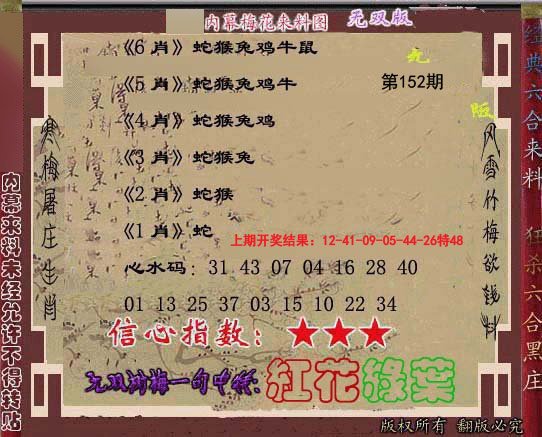 内幕梅花来料图 无双版
《6 肖》蛇猴兔鸡牛鼠
《5 肖》蛇猴兔鸡牛
第152期
《4 肖》蛇猴兔鸡
《3 肖》蛇猴兔
《2 肖》蛇猴
《1 肖》蛇
上期开奖结果：12-41-09-05-44-26特48
心水码：31 43 07 04 16 28 40
01 13 25 37 03 15 10 22 34
信心指数：★★★
无双 梅一句中特:红花绿葉
寒梅屠庄生肖
风雪竹梅欲钱料
内幕来料未经允许不得转贴
经典六合来料
狂杀六合黑庄
版权所有 翻版必究